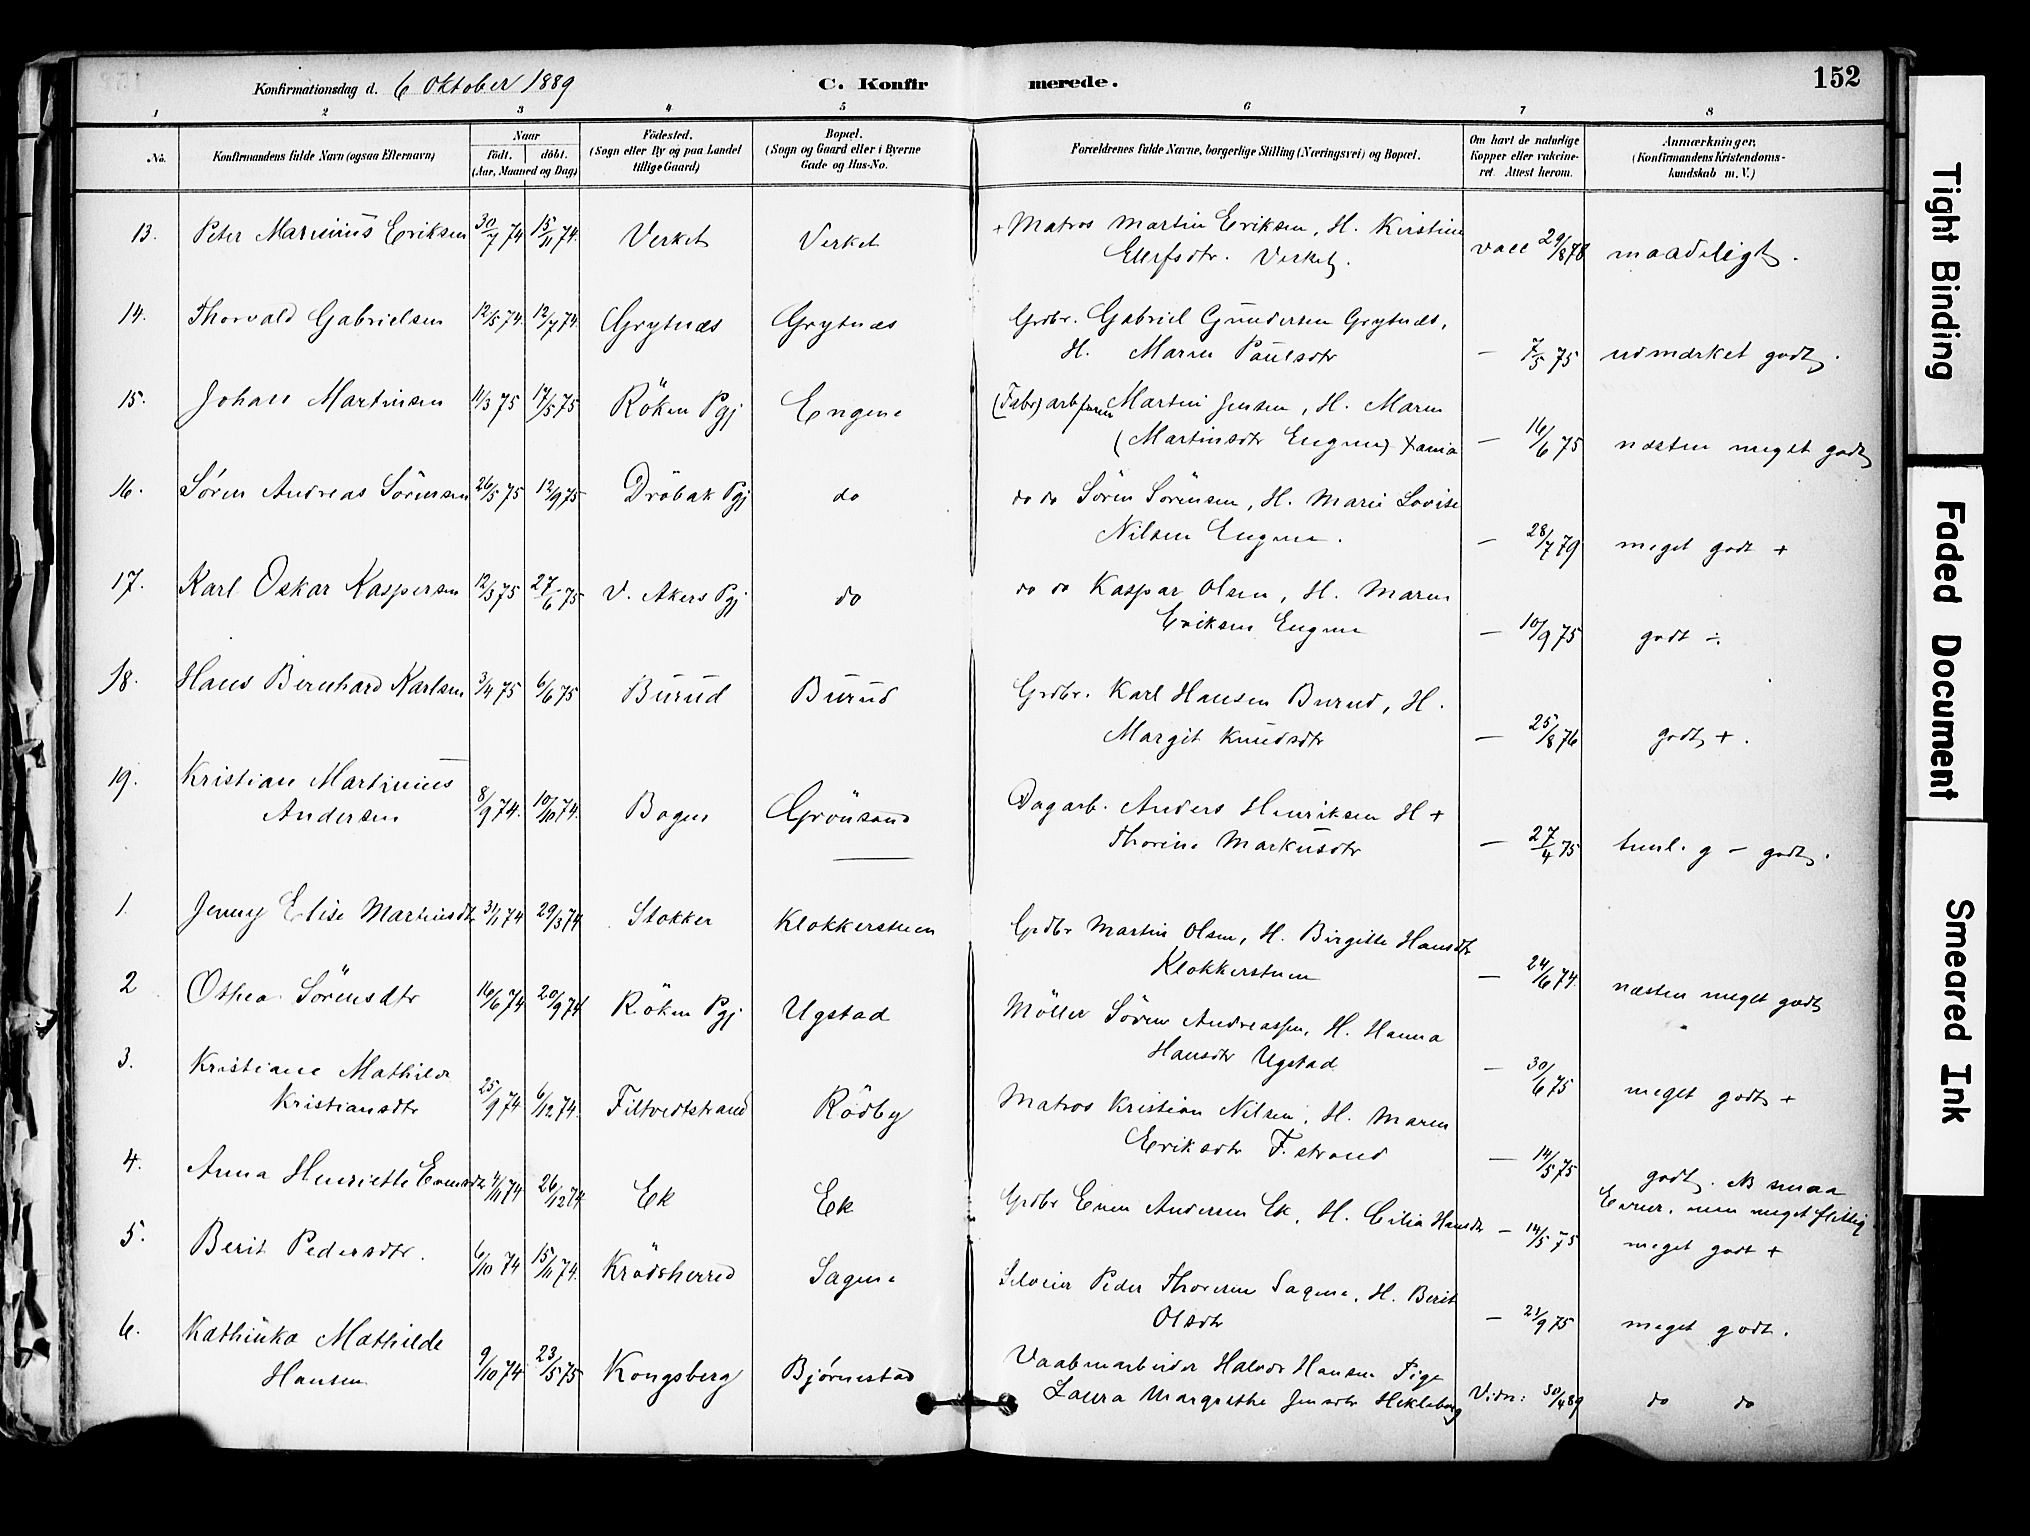 Konfirmationsdag d. 6 Oktober 1889
C. Konfirmerede.
152
1 2 3 4 5 6 7 8
No.
Konfirmandens fulde Navn (ogsaa Efternavn)
Naar
födt. döbt.
(Aar, Maaned og Dag)
Födested.
(Sogn eller By og paa Landet
tillige Gaard)
Bopæl.
(Sogn og Gaard eller i Byerne
Gade og Hus-No.
Forældrenes fulde Navne, borgerlige Stilling (Næringsvei) og Bopæl.
Om havt de naturlige
Kopper eller vakcine-
ret. Attest herom.
Anmærkninger.
(Konfirmandens Kristendoms-
kundskab m. V.)
13. Peter Marinius Eriksen 30/7 74 15/11 74. Verket Verket + Matros Martin Eriksen, H. Kirstine
Ellefsdtr. Verket. vacc 29/8 78 maadeligt.
14. Thorvald Gabrielsen 12/5 74. 12/7 74. Grytnæs Grytnæs Grdbr. Gabriel Gundersen Grytnæs,
H. Maren Paulsdtr — 7/5 75 udmærket godt.
15. Johan Martinsen 11/3 75 17/5 75 Röken Pgj Engene (Fabr) arb Martin Jensen, H. Maren
(Martinsdtr Engene) — 16/6 75 næsten meget godt
16. Søren Andreas Sörensen 26/5 75 12/9 75 Dröbak Pgj do do do Sören Sörensen, H. Marie Lovise
Nilsen Engene. — 28/7 79 meget godt +
17. Karl Oskar Kaspersen 12/3 75 27/6 75 V. Akers Pgj do do do Kaspar Olsen, H. Maren
Eriksen Engene — 10/9 75 godt ÷
18. Hans Bernhard Karlsen 3/4 75 6/6 75 Burud Burud Grdbr. Karl Hansen Burud, H.
Margit Knudsdtr — 25/8 76 godt +.
19. Kristian Martinius
Andersen 8/9 74. 10/10 74. Bogen Grönsand Dagarb. Anders Henriksen H +
Thorine Markusdtr — 27/4 75 teml. g — godt.
1. Jenny Elise Martinsdtr 31/1 74 29/3 74 Stokker Klokkerstuen Grdbr Martin Olsen, H. Birgitte Hansdtr
Klokkerstuen — 24/6 74. næsten meget godt
2 Othea Sörensdtr 16/6 74 20/9 74 Röken Pgj Ugstad Möller Sören Andreassen, H. Hanna
Hansdtr Ugstad — 30/6 75 meget godt +
3. Kristiane Mathilde
Kristiansdtr 25/9 74 6/12 74. Filtvedtstrand Rödby Matros Kristian Nilsen, H. Maren
Eriksdtr F.strand — 14/5 75 godt. NB smaa
Evner, men meget flittig
4. Anna Henriette Evensdtr 4/11 74 26/12 74 Ek Ek Grdbr Even Andersen Ek, H. Cilia Hansdtr — 14/5 75 meget godt +
5. Berit Pedersdtr. 6/10 74 15/11 74. Krödsherred Sagene Peder Thoresen Sagene, H. Berit
Olsdtr — 21/9 75 meget godt.
6. Kathinka Mathilde
Hansen 9/10 74 23/5 75 Kongsberg Bjørnestad Vaabenarbeider Halvor Hansen Pige
Laura Margrethe Jensdtr Hekleberg Vidn: 30/4 89 do do
Tight Binding
Faded Document
Smeared Ink